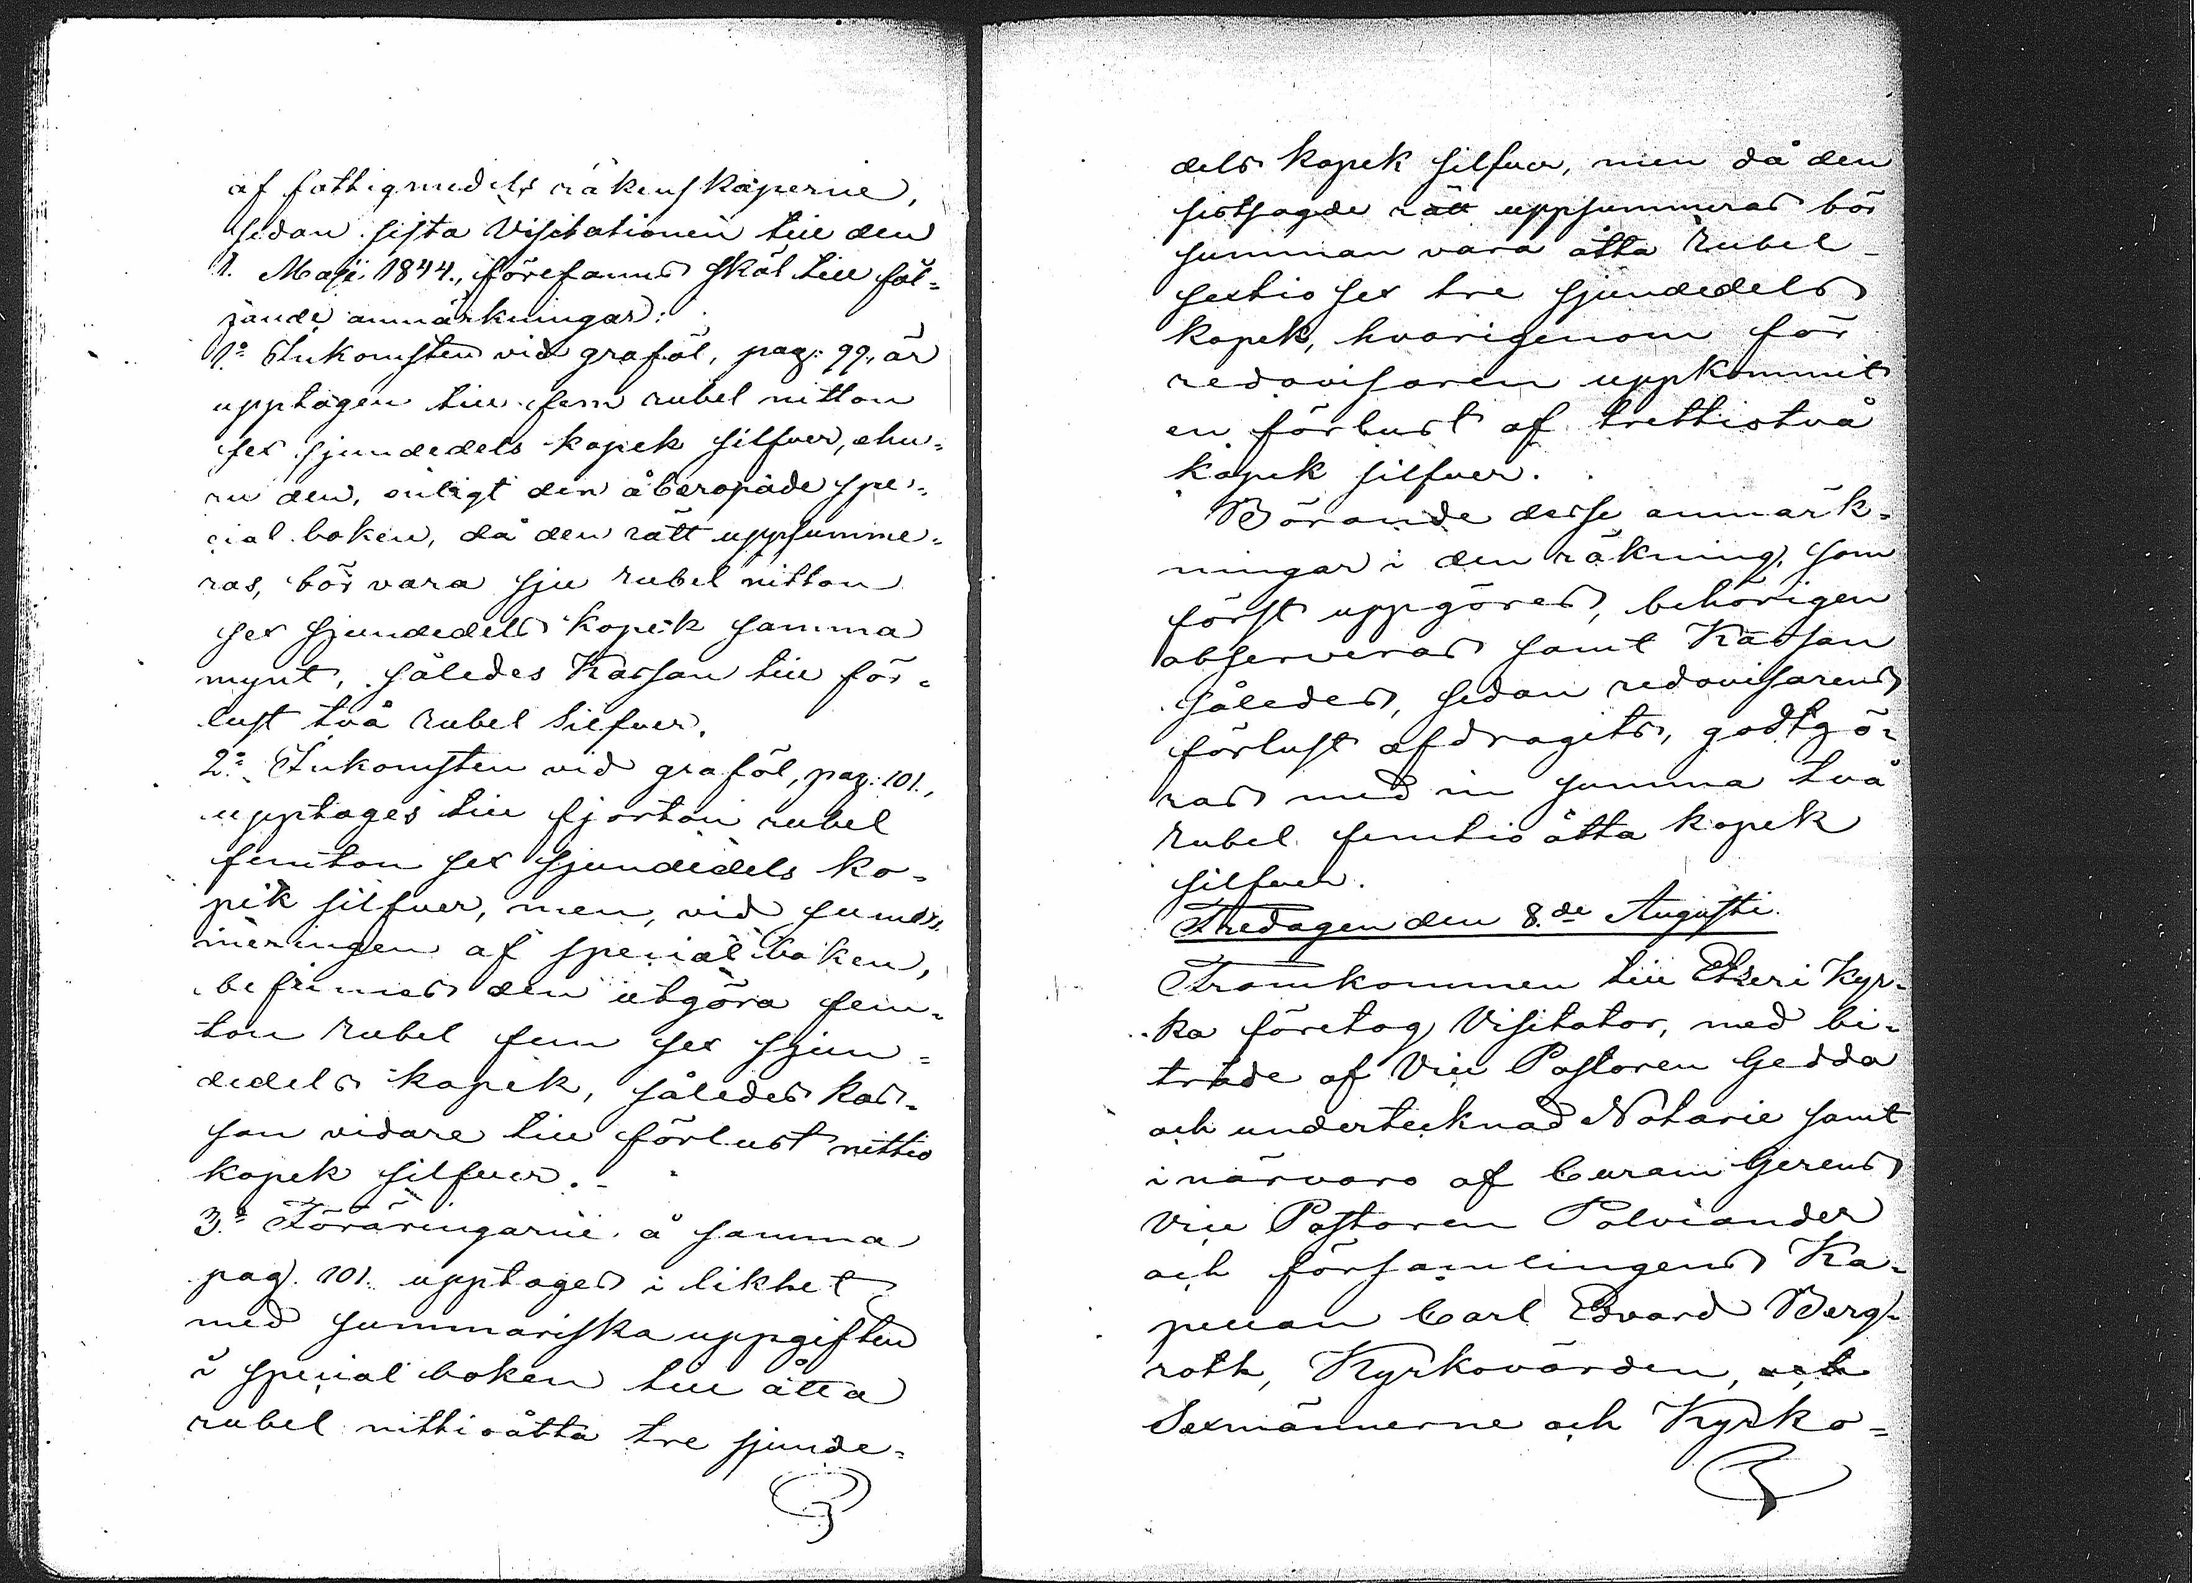 af fattigmedels räkenskaperne,
sedan sista Visitationen till den
1. Maji 1844., förefanns skäl till föl=
jande anmärkningar:
1:o Inkomsten vid graföl, pag: 99., är
upptagen till fem rubel nitton
sex sjundedels kopek silfver, ehu=
ru den, enligt den åberopade spe=
cial boken, då den rätt uppsumme=
ras, bör vara sju rubel nitton
sex sjundedels kopek samma
mynt, således Kassan till för=
lust två rubel Silfver.
2:o Inkomsten vid graföl, pag: 101.,
upptages till fjorton rubel
femton sex sjundedels ko=
pek silfver, men, vid summ
meringen af special boken,
befinnes den utgöra fem=
ton rubel fem sex sjun=
dedels kopek, således kas=
san vidare till förlust nittio
kopek silfver.
3:o Föräringarne å samma
pag. 101. upptages i likhet
med summariska uppgiften
i special boken till åtta
rubel nittioåtta tre sjunde=
dels kopek silfver, men då den
sistsagde rätt uppsummeras bör
summan vara åtta rubel
sextio sex tre sjundedels
kopek, hvarigenom för
redovisaren uppkommit
en förlust af trettiotvå
kopek silfver.
Börande desse anmärk=
ningar i den räkning, som
först uppgöres, behörigen
observeras samt Kassan
således, sedan redovisarens
förlust afdragits, godtgö=
ras med en summa två
rubel femtio åtta kopek
silfver.
Fredagen den 8.de Augusti.
Framkommen till Etseri Kyr=
ka företog Visitator, med bi=
träde af Vice Pastoren Gedda
och undertecknad Notarie samt
i närvaro af Curam Gerens
Vice Pastoren Polviander
och församlingens Ka=
pellan Carl Edvard Berg=
roth, Kyrkovärden, och
Sexmännerne och Kyrko=